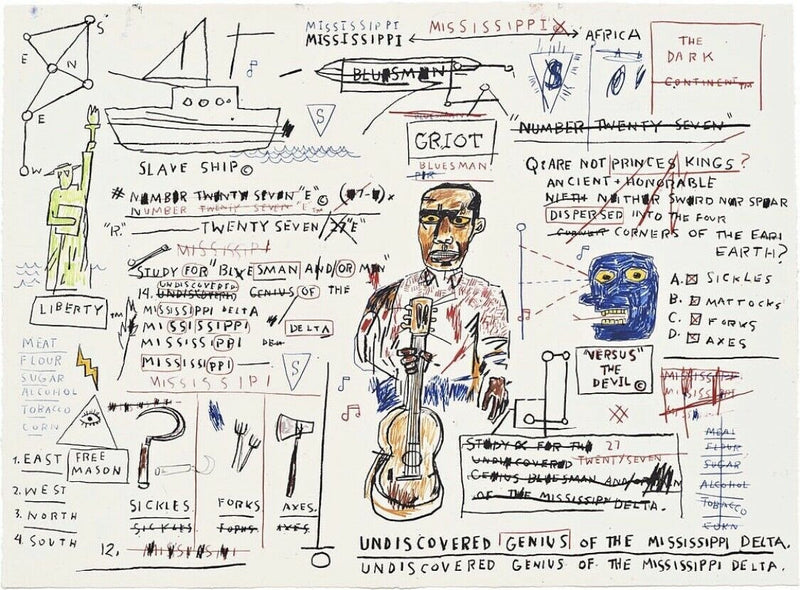 S
E
N
E
W
MISSISSIPPI
MISSISSIPPI
MISSISSIPPI
AFRICA
THE
DARK
CONTINENT™
BLUESMAN
S
S
GRIOT
BLUESMAN
"NUMBER TWENTY SEVEN"
SLAVE SHIP©
# NUMBER TWENTY SEVEN "E"©
NUMBER TWENTY SEVEN "E™
"R." TWENTY SEVEN "E"
MISSISSIPI
STUDY FOR "BLUESMAN AND/OR MEN"
UNDISCOVERED
14. UNDISCOVERED GENIUS OF THE
MISSISSIPPI DELTA
MISSISSIPPI DELTA
MISSISSIPPI
MISSISSIPPI
MISSISSIPI
S
Q: ARE NOT PRINCES KINGS?
ANCIENT + HONORABLE
NIETH NEITHER SWORD NOR SPEAR
DISPERSED INTO THE FOUR
CORNERS OF THE EAR
EARTH?
A. SICKLES
B. MATTOCKS
C. FORKS
D. AXES
LIBERTY™
MEAT
FLOUR
SUGAR
ALCOHOL
TOBACCO
CORN
FREE
MASON
1. EAST
2. WEST
3. NORTH
4. SOUTH
SICKLES
SICKLES
FORKS
FORKS
AXES.
AXES
12.
"VERSUS"
THE
DEVIL©
MISSISSIPPI
MEAT
FLOUR
SUGAR
ALCOHOL
TOBACCO
CORN
STUDY FOR THE 27
UNDISCOVERED TWENTYSEVEN
GENIUS BLUESMAN AND/OR
OF THE MISSISSIPPI DELTA.
UNDISCOVERED GENIUS OF THE MISSISSIPPI DELTA.
UNDISCOVERED GENIUS OF THE MISSISSIPPI DELTA.